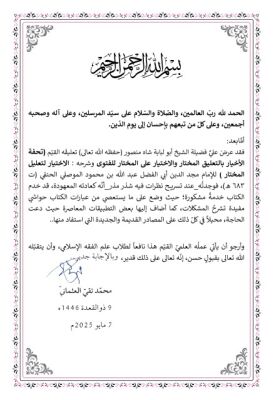 بسم الله الرحمن الرحيم
الحمد لله ربّ العالمين، والصّلاة والسّلام على سيّد المرسلين، وعلى آله وصحبه
أجمعين، وعلى كلّ من تبعهم بإحسان إلى يوم الدّين.
أمّا بعد:
فقد عرض عليّ فضيلة الشيخ أبو لبابة شاه منصور (حفظه الله تعالى) تعليقه القيّم (تحفة
الأخيار بالتعليق المختار والاختيار على المختار للفتوى وشرحه : الاختيار لتعليل
المختار ) للإمام مجد الدين أبي الفضل عبد الله بن محمود الموصلي الحنفي (ت
٦٨٣ هـ)، فوجدتُه عند تسريح نظرات فيه شذر مذر أنّه كعادته المعهودة، قد خدم
الكتاب خدمةً مشكورة؛ حيث وضع على ما يستعصي من عبارات الكتاب حواشي
مفيدة تشرح المشكلات، كما أضاف إليها بعض التطبيقات المعاصرة حيث دعت
الحاجة، محيلاً في كلّ ذلك على المصادر القديمة والجديدة التي استفاد منها.
وأرجو أن يأتي عملُه العلميّ القيّم هذا نافعاً لطلاب علم الفقه الإسلامي، وأن يتقبّله
الله تعالى بقبولٍ حسن، إنّه تعالى على ذلك قدير، وبالإجابة جدير.
محمّد تقيّ العثمانيّ
9 ذو القعدة 1446ه
7 مايو 2025م